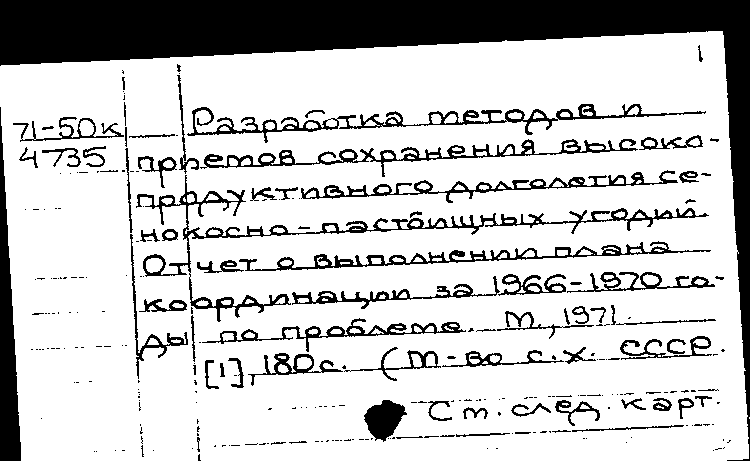 1
71-50к
4735
Разработка методов и
приемов сохранения высоко-
продуктивного долголетия се-
нокосно-пастбищных угодий.
Отчет о выполнении плана
координации за 1966-1970 го-
ды по проблеме. М., 1971.
[1], 180с. (М-во с.х. СССР.
См. след. карт.